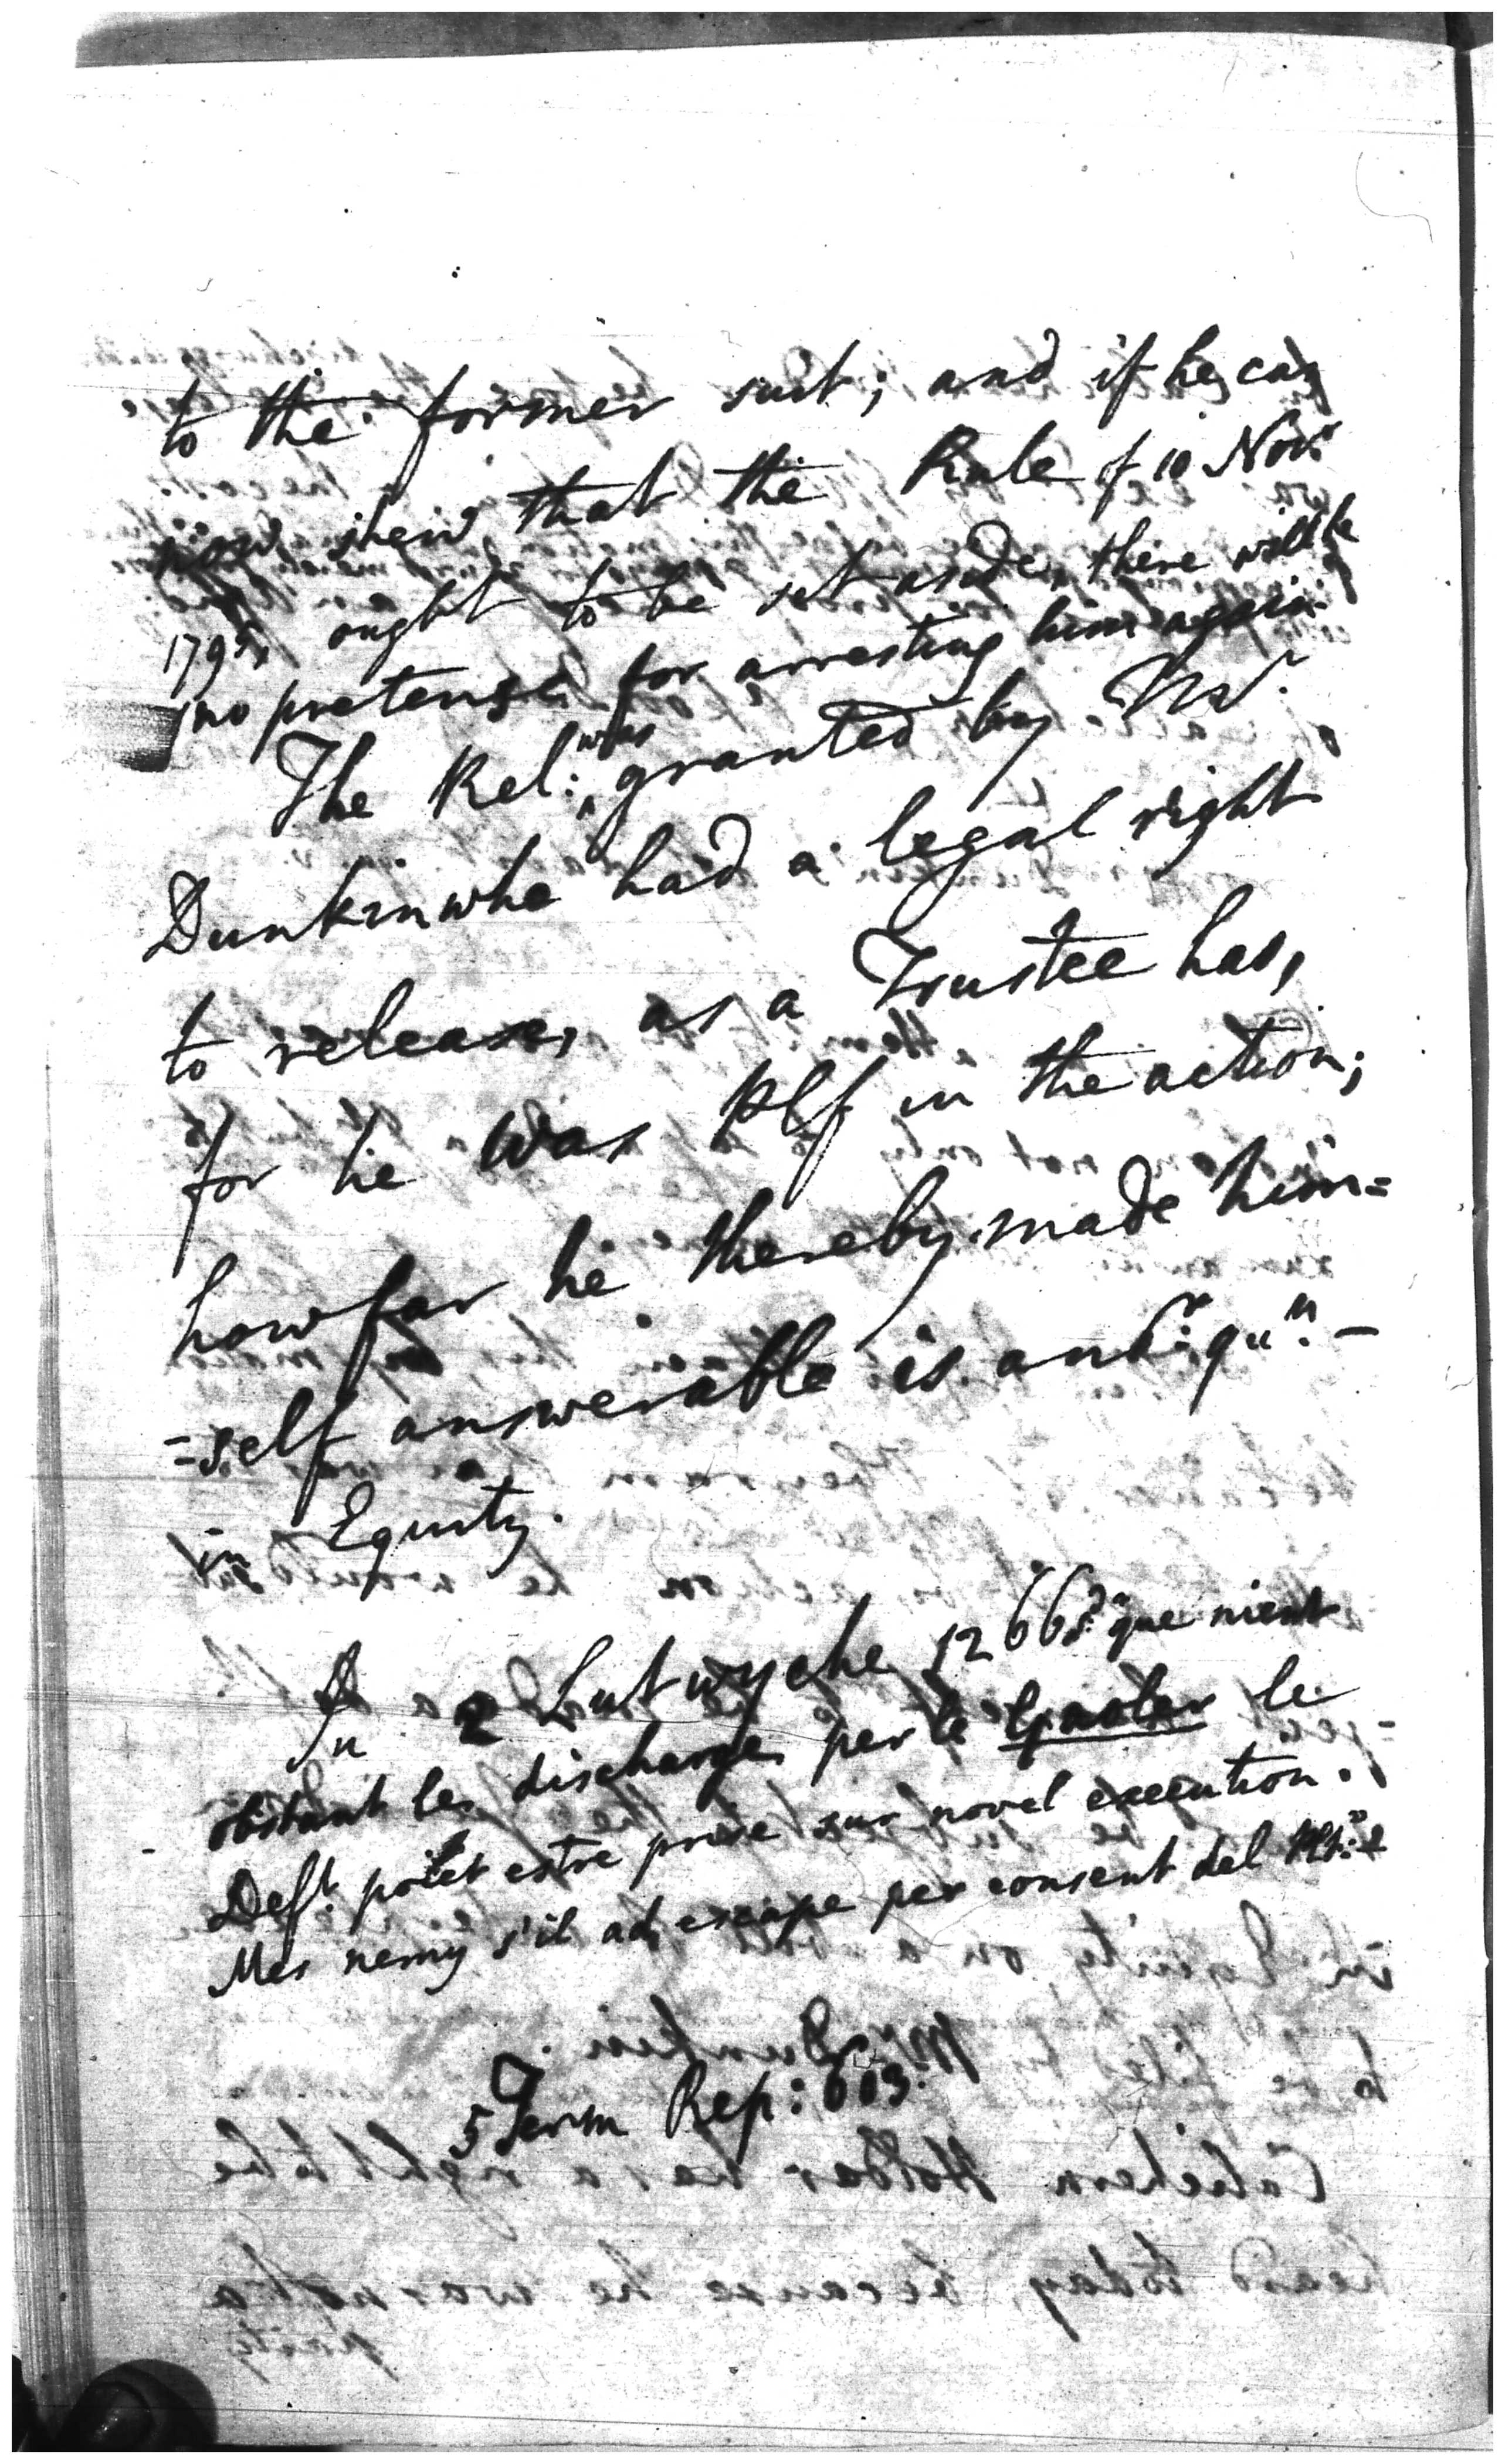 to the former suit; and if he can
now shew that the Rule of 10 Nov.r
1795, ought to be set aside, there will be
no pretense for arresting him again.
The Rel: was granted by Mr.
Dunkin who had a legal right
to release, as a Trustee has,
for he was Plf in the action;
how far he thereby made him=
=self answerable is anor: qun. -
in Equity.
In 2 Lutwyche 1266 que nient
obstant le discharge per le Gaoler le
Deft. poiet estre prise sur novel execution.
Mes nemy s'il ad escape per consent del
5 Term Rep: